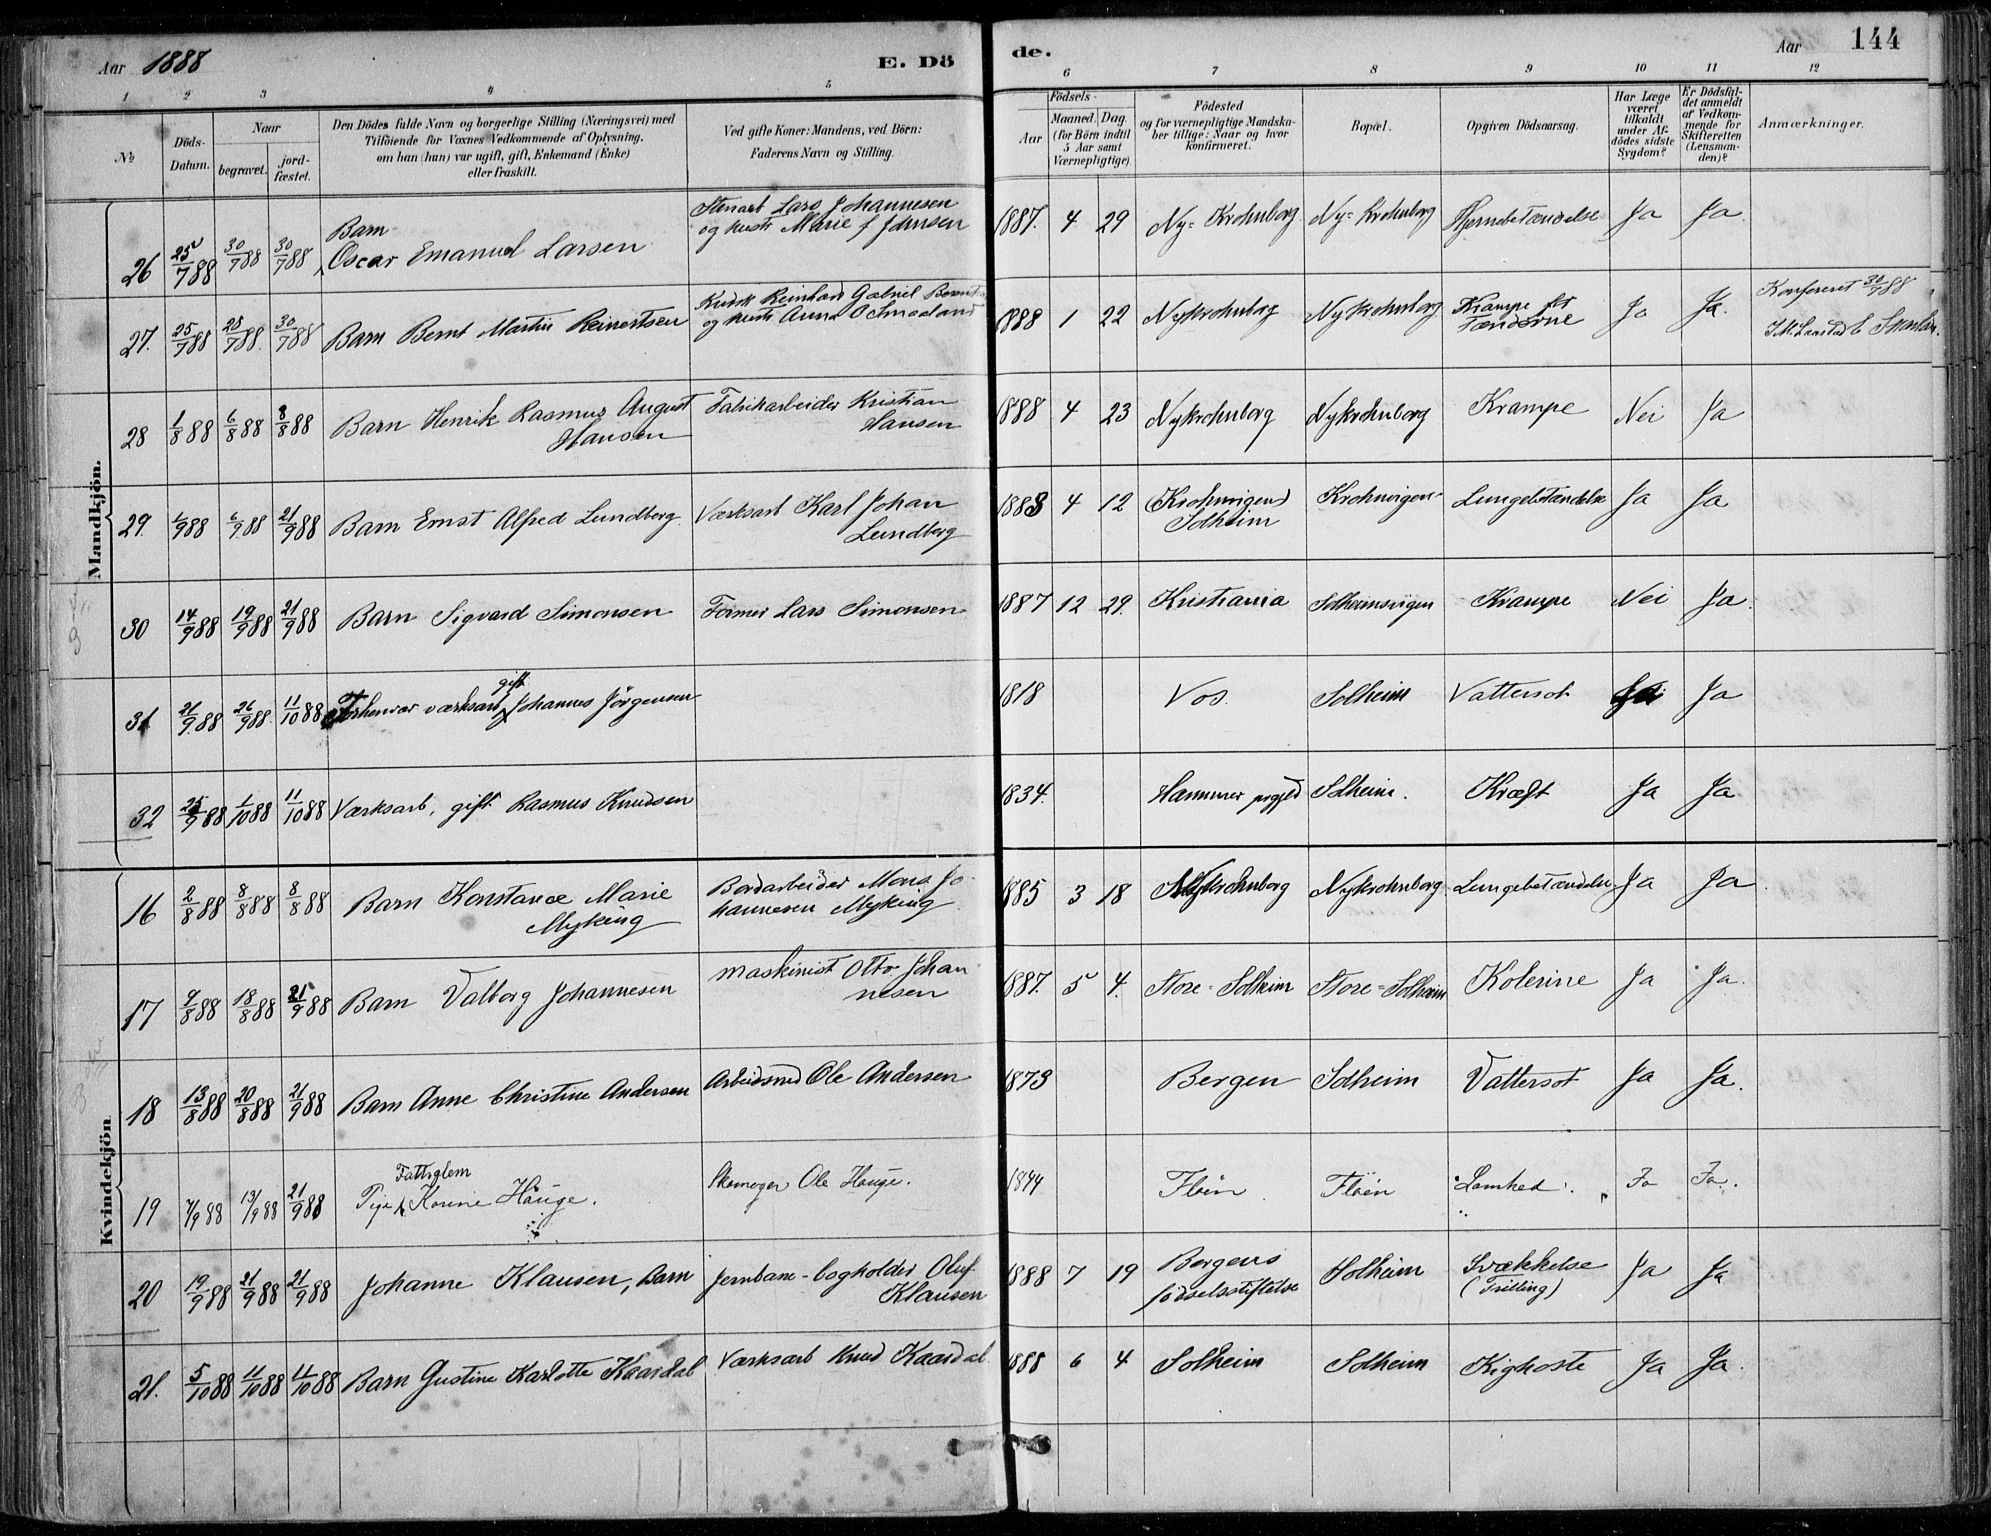 Aar 1888 E. Dö de. Aar 144
1 2 3 4 5 6 7 8 9 10 11 12
№
Döds-
Datum.
Naar
begravet.
jord-
fæstet.
Den Dödes fulde Navn og borgerlige Stilling (Næringsvei) med
Tilföiende for Voxnes Vedkommende af Oplysning,
om han (hun) var ugift, gift, Enkemand (Enke)
eller fraskilt.
Ved gifte Koner: Mandens, ved Börn:
Faderens Navn og Stilling.
Födsels-
Aar
Maaned. Dag.
(for Börn indtil
5 Aar samt
Værnepligtige).
Födested
og for værnepligtige Mandska-
ber tillige: Naar og hvor
konfirmeret.
Bopæl.
Opgiven Dödsaarsag.
Har Læge
været
tilkaldt
under Af-
dödes sidste
Sygdom?
Er Dödsfal-
det anmeldt
af Vedkom-
mende for
Skifteretten
(Lensman-
den)?
Anmærkninger.
Mandkjön.
26 25/7 88 30/7 88 30/7 88 Barn Oscar Emanuel Larsen Stenarb Lars Johannesen og hustr Marie f Jörnsen 1887. 4 29 Ny=Krohnborg Ny=Krohnborg Hjernebetændelse Ja Ja
27. 25/7 88 28/7 88. 30/7 88 Barn Bernt Martin Reinertsen Kudsk Reinhard Gabriel og hustr Anna 1888 1 22 Nykrohnborg Nykrohnborg Krampe for Tænderne Ja Ja. Konfereret 30/7 88
28 1/8 88 6/8 88 8/8 88 Barn Henrik Rasmus August Hansen Fabrikarbeider Kristian Hansen 1888 4 23 Nykrohnborg Nykrohnborg Krampe Nei Ja
29. 1/9 88 6/9 88 21/9 88 Barn Ernst Alfred Lundberg Værksarb Karl Johan Lundberg 1888 4 12 (Krohnvigen) Solheim Krohnvigen Lungebetændelse Ja Ja
30 14/9 88 19/9 88 21/9 88 Barn Sigvard Simonsen Former Lars Simonsen 1887 12 29. Kristiania Solheimsvigen Krampe Nei Ja
31 21/9 88 26/9 88. 11/10 88 Forhenvær værksarb gift Johannes Jörgensen 1818 Vos. Solheim Vattersot Ja
32 25/9 88 1/10 88 11/10 88 Værksarb, gift Rasmus Knudsen 1834. Hammer prgjld Solheim. Kræft Ja Ja
Kvindekjön
16 2/8 88 8/8 88 8/8 88 Barn Konstance Marie Myking Bordarbeider Mons Johannesen Myking 1885 3 18 Nykrohnborg Nykrohnborg Lungebetændelse Ja Ja
17 9/8 88 18/8 88 21/9 88 Barn Valborg Johannesen Maskinist Otto Johannesen 1887. 5 4. Store=Solheim Store=Solheim Kolerine Ja Ja.
18 13/8 88 20/8 88 21/9 88 Barn Anne Christine Andersen Arbeidsmd Ole Andersen 1873 Bergen Solheim Vattersot Ja Ja.
19 7/9 88 13/9 88 21/9 88 Pige Fattiglem Korine Hauge. Skomager Ole Hauge. 1844 Flöen Flöen Lamhed. Ja Ja.
20 19/9 88 21/9 88 21/9 88 Johanne Klausen, Barn Jernbane-bogholder Oluf Klausen 1888 7 19 Bergens födselsstiftelse Solheim Svækkelse (Trilling) Ja Ja
21. 5/10 88 11/10 88 11/10 88 Barn Gustine Karlotte Kaardal Værksarb Knud Kaardal 1888 6 4 Solheim Solheim Kighoste Ja Ja.